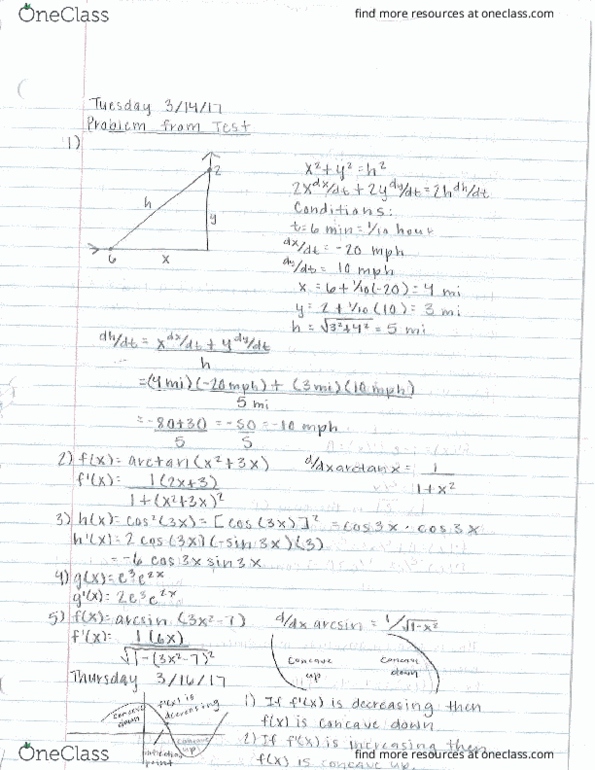 OneClass
find more resources at oneclass.com
Tuesday 3/14/17
Problem from Test
1)
2
h
y
6
x
x²+y²=h²
2x dx/dt + 2y dy/dt = 2h dh/dt
Conditions:
t=6 min = 1/10 hour
dx/dt = -20 mph
dy/dt = 10 mph
x = 6 + 1/10(-20) = 4 mi
y = 2 + 1/10(10) = 3 mi
h = √3²+4² = 5 mi
dh/dt = x dx/dt + y dy/dt
h
= (4 mi)(-20 mph) + (3 mi)(10 mph)
5 mi
= -80+30 = -50 = -10 mph
5 5
2) f(x) = arctan(x²+3x) d/dx arctan x = 1
1+x²
f'(x) = 1(2x+3)
1+(x²+3x)²
3) h(x) = cos²(3x) = [cos(3x)]² = cos3x · cos3x
h'(x) = 2 cos(3x)(-sin3x)(3)
= -6 cos3x sin3x
4) g(x) = e³e²ˣ
g'(x) = 2e³e²ˣ
5) f(x) = arcsin(3x²-7) d/dx arcsin = 1/√1-x²
f'(x) = 1(6x)
√1-(3x²-7)²
concave up
concave down
Thursday 3/16/17
concave down
f'(x) is decreasing
concave up
inflection point
1) If f'(x) is decreasing then
f(x) is concave down
2) If f'(x) is increasing then
f(x) is concave up.
OneClass
find more resources at oneclass.com